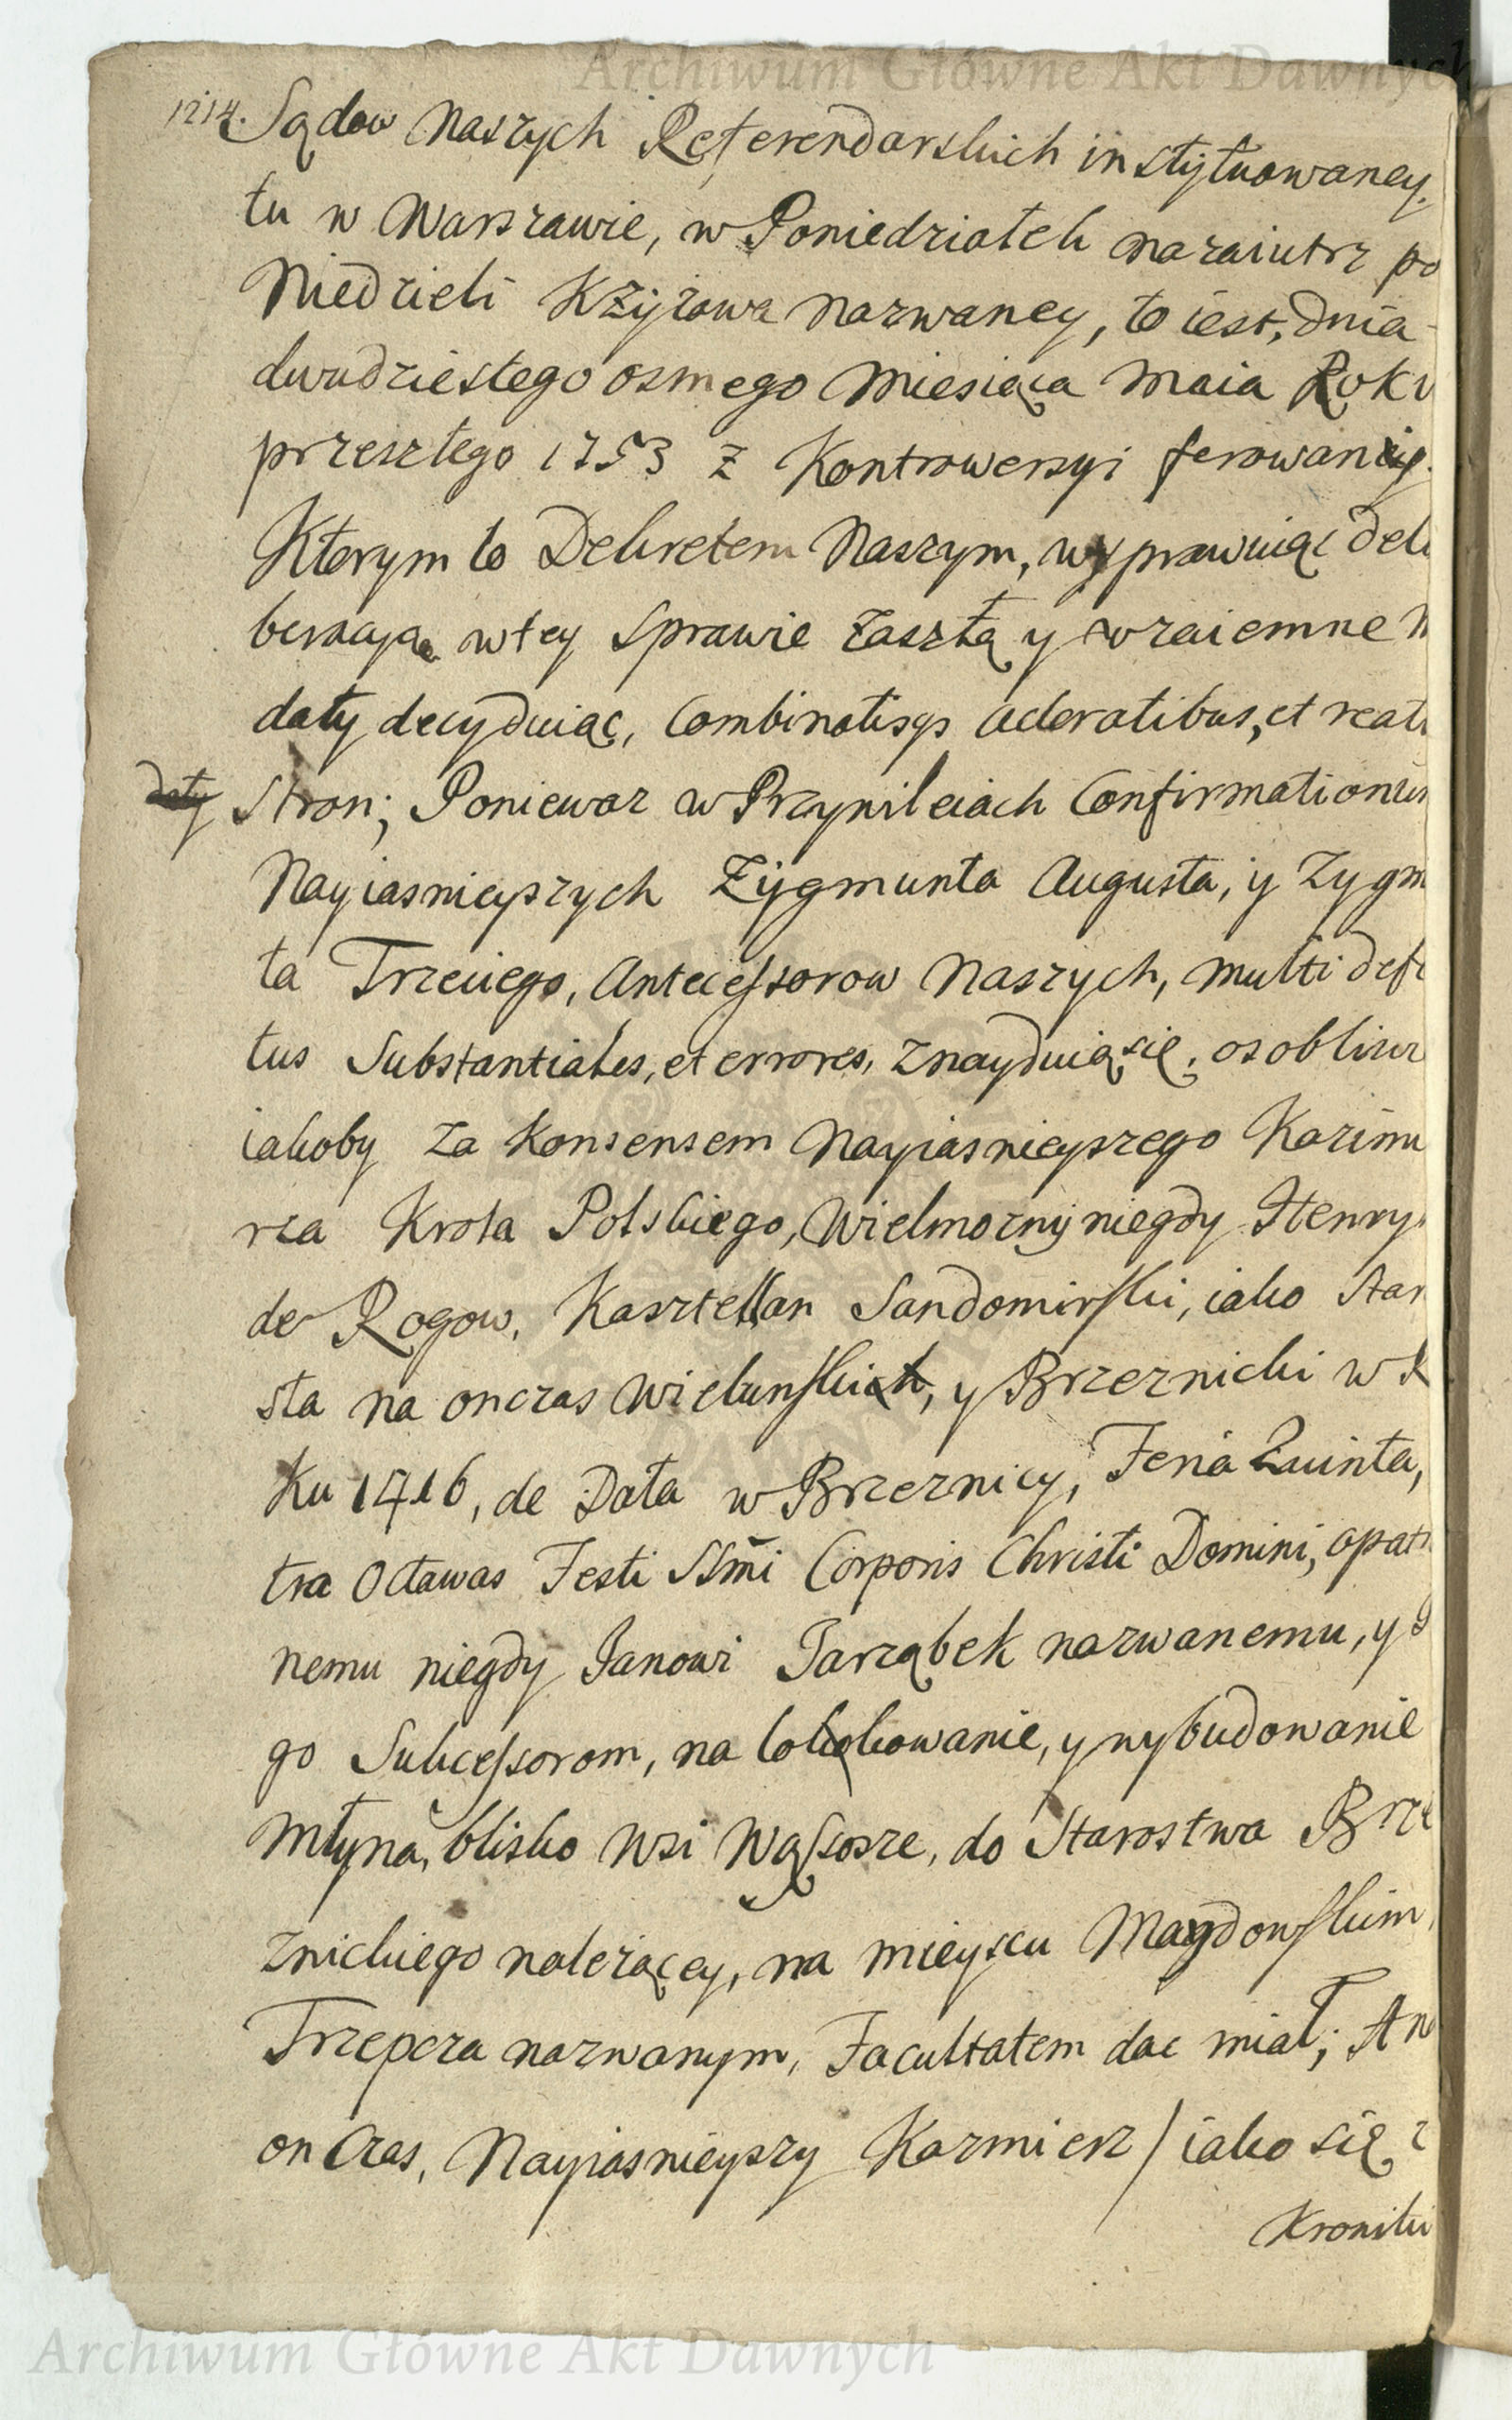 Archiwum Główne Akt Dawnych
1214. Sądow Naszych Referendarskich instytuowaney.
tu w Warszawie, w Poniedziałek nazaiutrz po
Niedzieli Krzyżowa nazwaney, to iest, dnia
dwudziestego osmego Miesiąca Maia Roku
przeszłego 1753 z Kontrowersyi ferowany
Ktorym to Dekretem Naszym, wyprawuiąc deli
beracyą w tey Sprawie zaszłą y wzaiemne
daty decyduiąc, Combinatisqs acleratibus, et reati
daty Stron; Poniewaz w Przywileiach Confirmationum
Nayiasnieyszych Zygmunta Augusta, y Zygm
ta Trzeciego, Antecessorow Naszych, multi defe
tus Substantiales, et errores, znayduią się, osobliwie
iakoby za Konsensem Nayiasnieyszego Kazimi
rza Krola Polskiego, Wielmozny niegdy Henryk
de Rogow, Kasztellan Sandomirski, iako Star
sta na onczas Wielunskich, y Brzeznicki w R
Ku 1416, de Data w Brzeznicy, Feria Quinta,
tra Octawas Festi SSmi Corporis Christi Domini, opatr
nemu niegdy Janowi Jarząbek nazwanemu, y
go Sukcessorom, na lokowanie, y wybudowanie
Młyna, blisko Wsi Wąsosze, do Starostwa Brze
znickiego należącey, na mieyscu Maydowskim,
Trzepcza nazwanym, Facultatem dac miał; A na
on Czas, Nayiasnieyszy Kazmierz / iako się z
Kroniki
Archiwum Główne Akt Dawnych